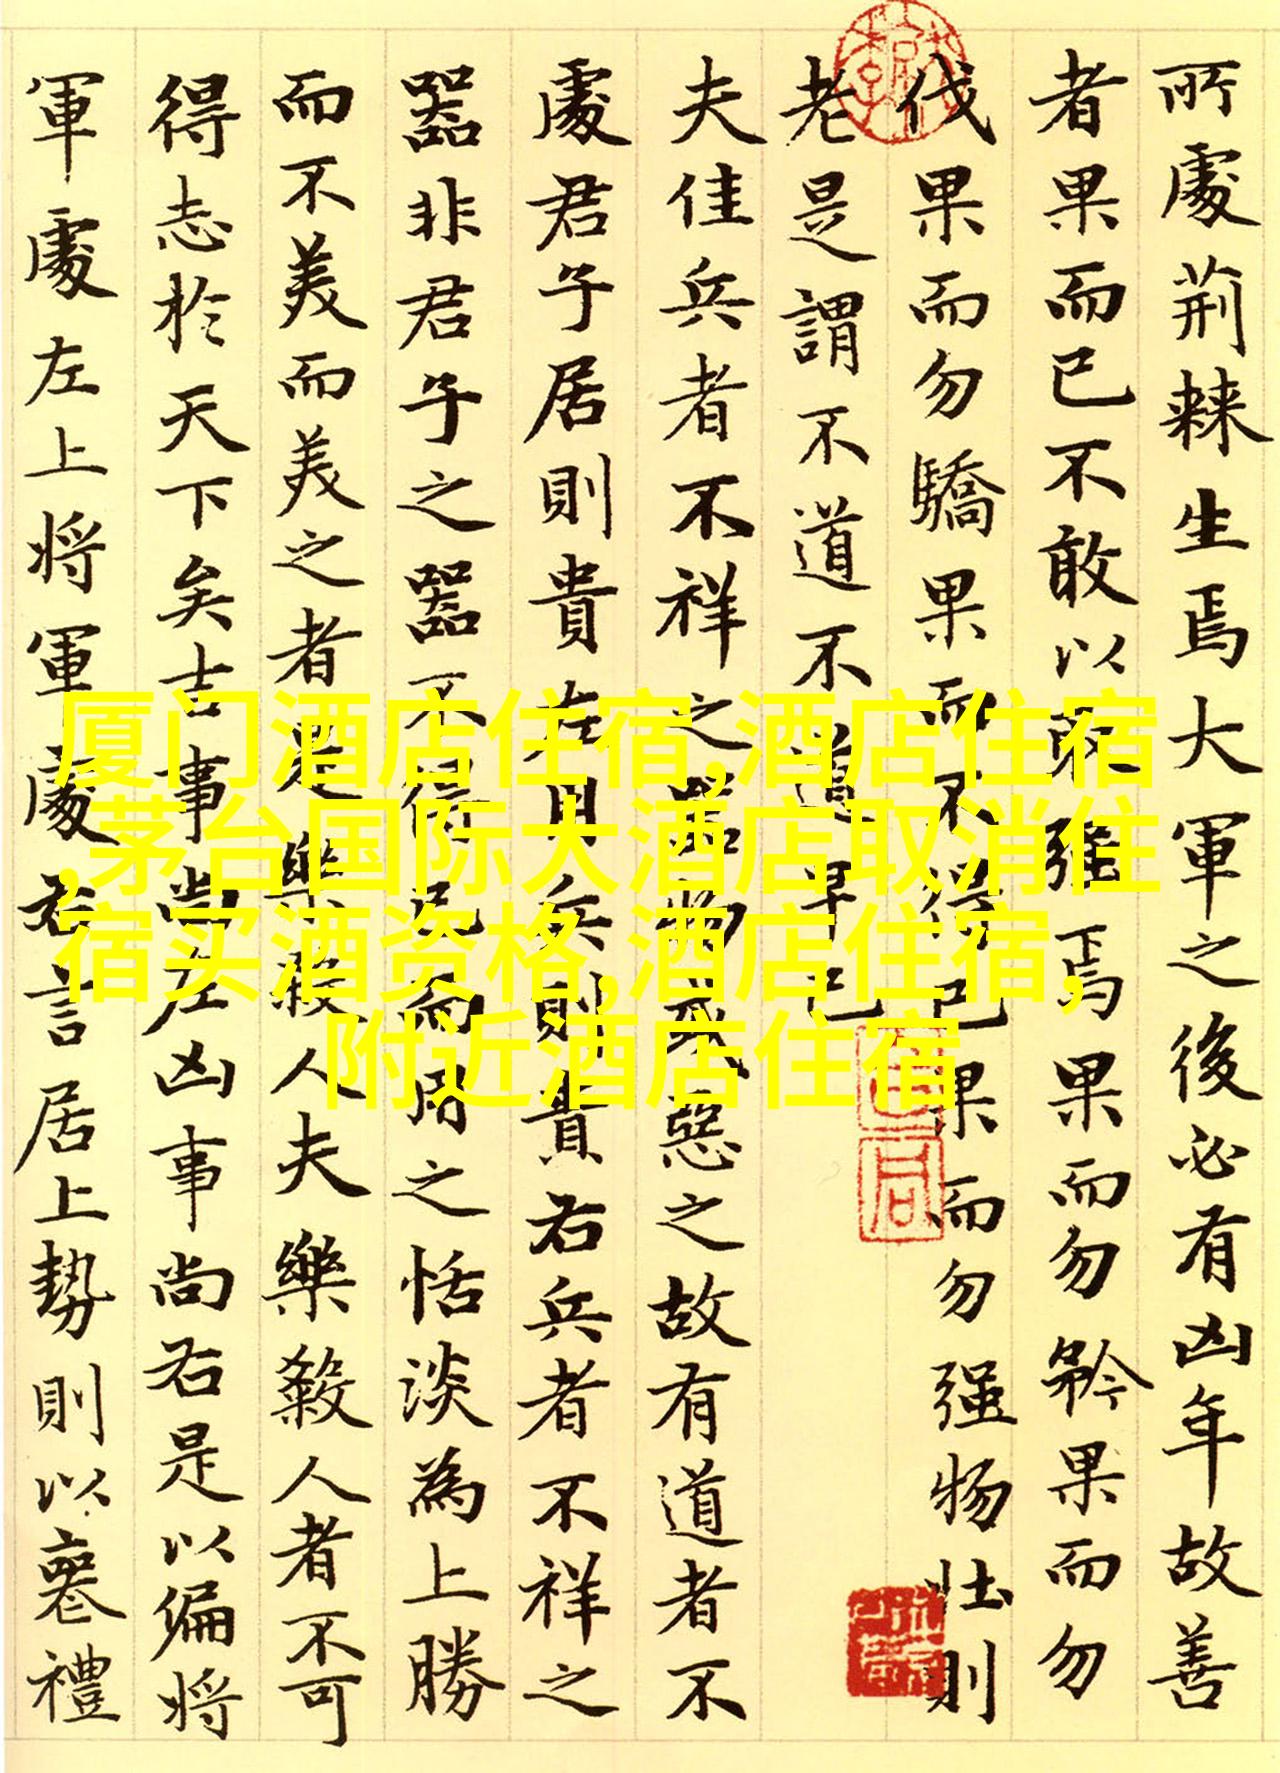 所處荊棘生焉大軍之後必有凶年故善
者果而已不敢以取强焉果而勿矜果而勿
伐果而勿驕果而不得已果而勿强物壮則
老是謂不道不道早已
夫佳兵者不祥之器物或惡之故有道者不
處君子居則貴左用兵則貴右兵者不祥之
器非君子之器不得已而用之恬淡為上勝
而不美而美之者是樂殺人夫樂殺人者不可
得志於天下矣吉事尚左凶事尚右是以偏將
軍處左上將軍處右言居上勢則以喪禮
厦门酒店住宿,酒店住宿
,茅台国际大酒店取消住
宿买酒资格,酒店住宿,
附近酒店住宿